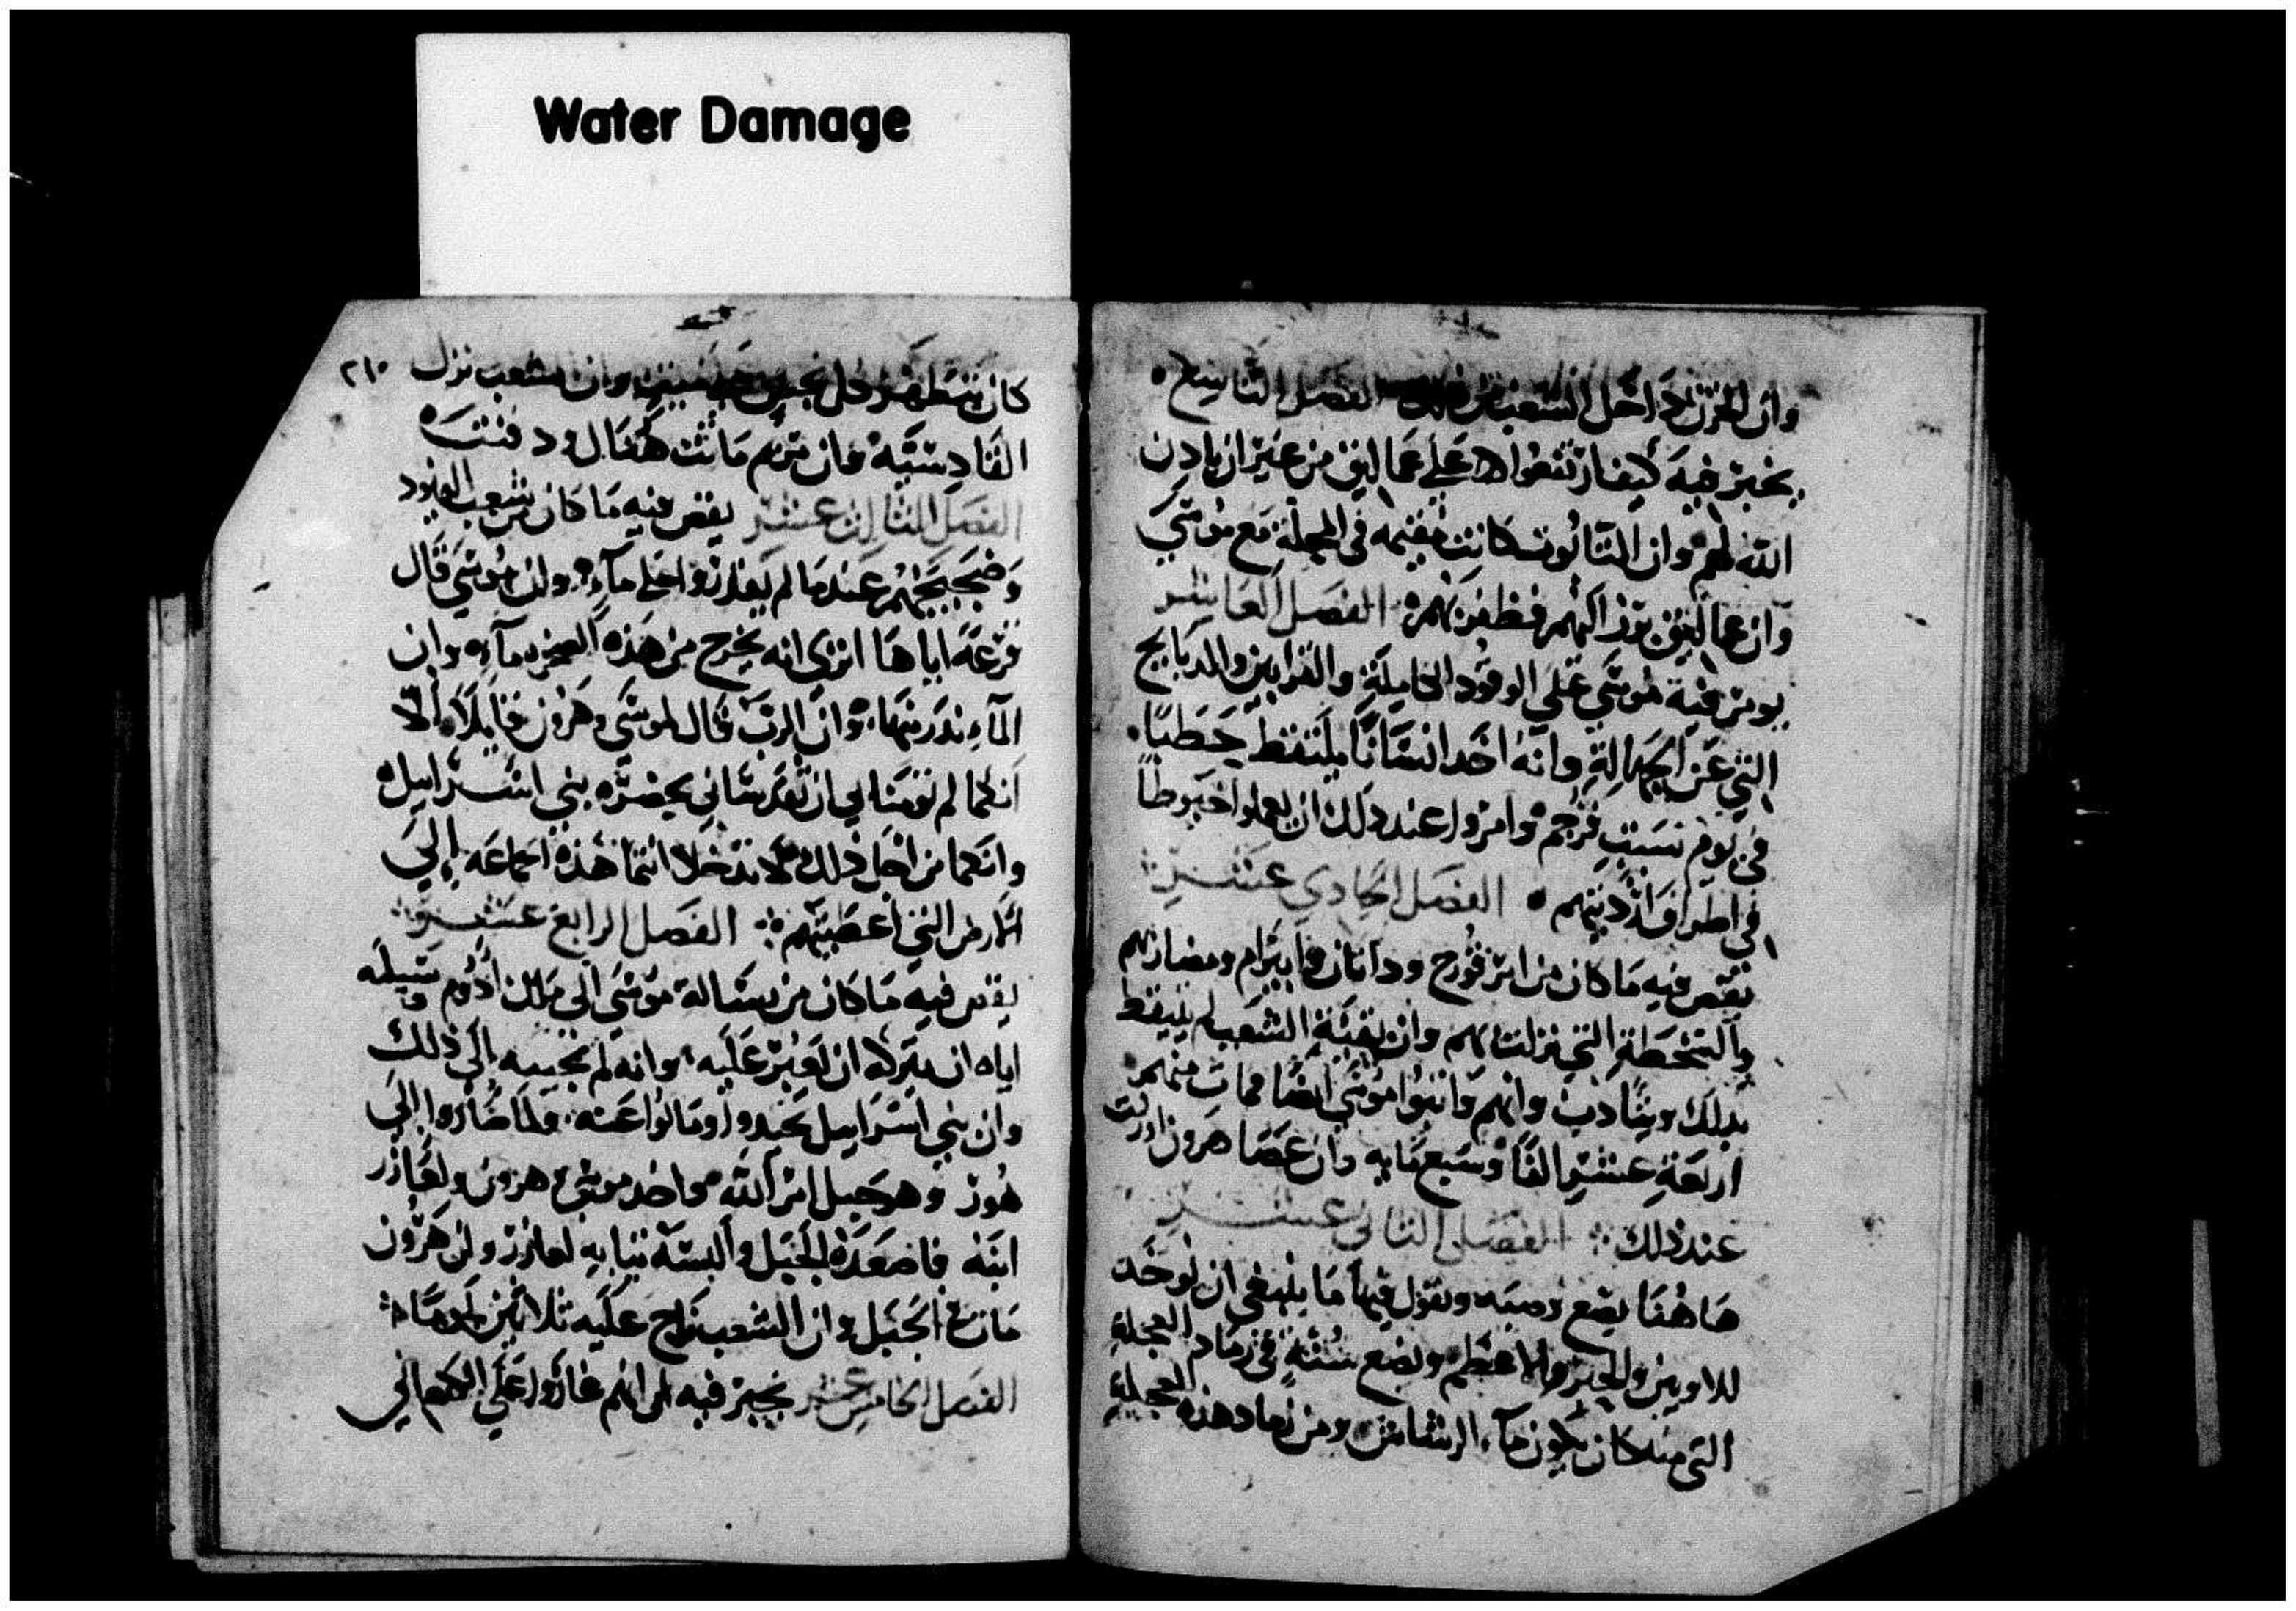 Water Damage
وان الحزن داخل الشعب من الفصل التاسع
يخبر فيه كيف ارتفعوا الا على عماليق من غير ان ياذن
الله لهم وان التابوت كانت مقيمه فى المحلة مع موسي
وان عماليق برز اليهم فظفر بهم الفصل العاشر
يومر فيه موسي علي الوقود الكاملة والقرابين والدبايح
التي عن الجهالة وانه اخد انسانا يلتقط حطبا
في يوم سبت فرجم وامروا عند دلك ان يعملوا خيوطا
في اطراف ارديتهم الفصل الحادي عشر
يقص فيه ما كان من امر قورح وداثان وابيرام ومضارتهم
والسخطة التي نزلت بهم وان بقية الشعب لم يتيقظ
بدلك ويتادب وانهم واثبوا موسي ايضا فمات منهم
اربعة عشر الفا وسبع مايه وان عصا هرون اورقت
عند ذلك الفصل الثاني عشر
هاهنا يضع وصيه ويقول فيها ما ينبغي ان يوخد
للاويين والحبر الاعظم ويضع سنة في رماد العجلة
التي منه كان يكون مآء الرشاش ومن رماد هذه العجلة
٢١٠
كان يتطهر كل نجس وان الشعب نزل
القادسية وان مريم ماتت هنالك ودفنت
الفصل الثالث عشر يقص فيه ما كان من شعب اليهود
وضجيجهم عندما لم يقدروا على مآء وان موسي قال
قرعه اياها اترى انه يخرج من هذه الصخره مآء وان
المآء ندر منها وان الرب قال لموسي وهرون قايلا الا
انكما لم تومنا بي ان تقدساني بحضرة بني اسراييل
وانكما من اجل ذلك لا تدخلا انتما هذه الجماعه إلي
الارض التي اعطيتهم الفصل الرابع عشر
يقص فيه ما كان من رسالة موسي الى ملك ادوم وسيله
اياه ان يتركه ان يعبر عليه وانه لم يجيبه الى ذلك
وان بني اسراييل حيدوا ومالوا عنه ولما صاروا الي
هور وهو جبل امر الله فاخد موسي هرون ولعازر
ابنه فاصعده الجبل والبسه ثيابه لعازر وان هرون
مات في الجبل وان الشعب ناح عليه ثلاثين يوما
الفصل الخامس عشر يخبر فيه انهم غاروا علي الكنعاني